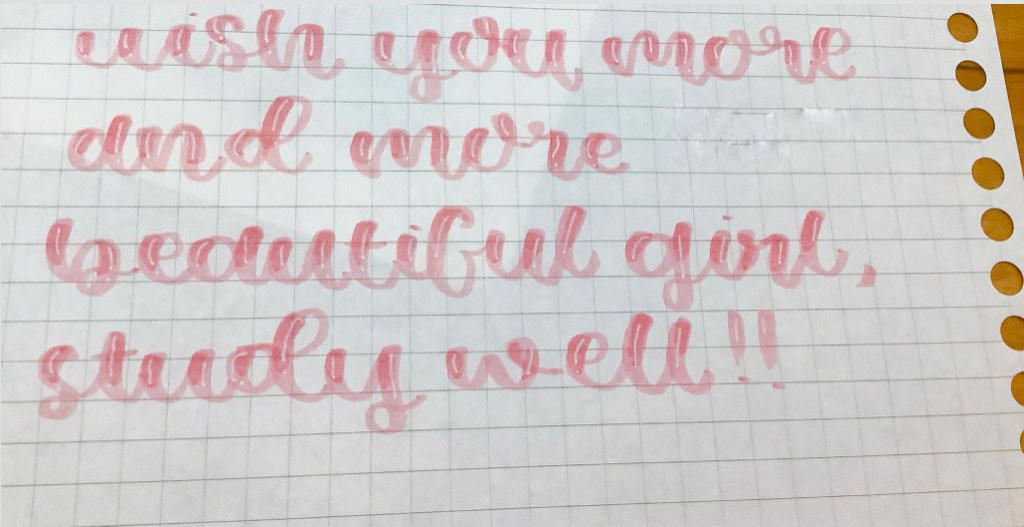 wish you more
and more
beautiful girl,
study well!!